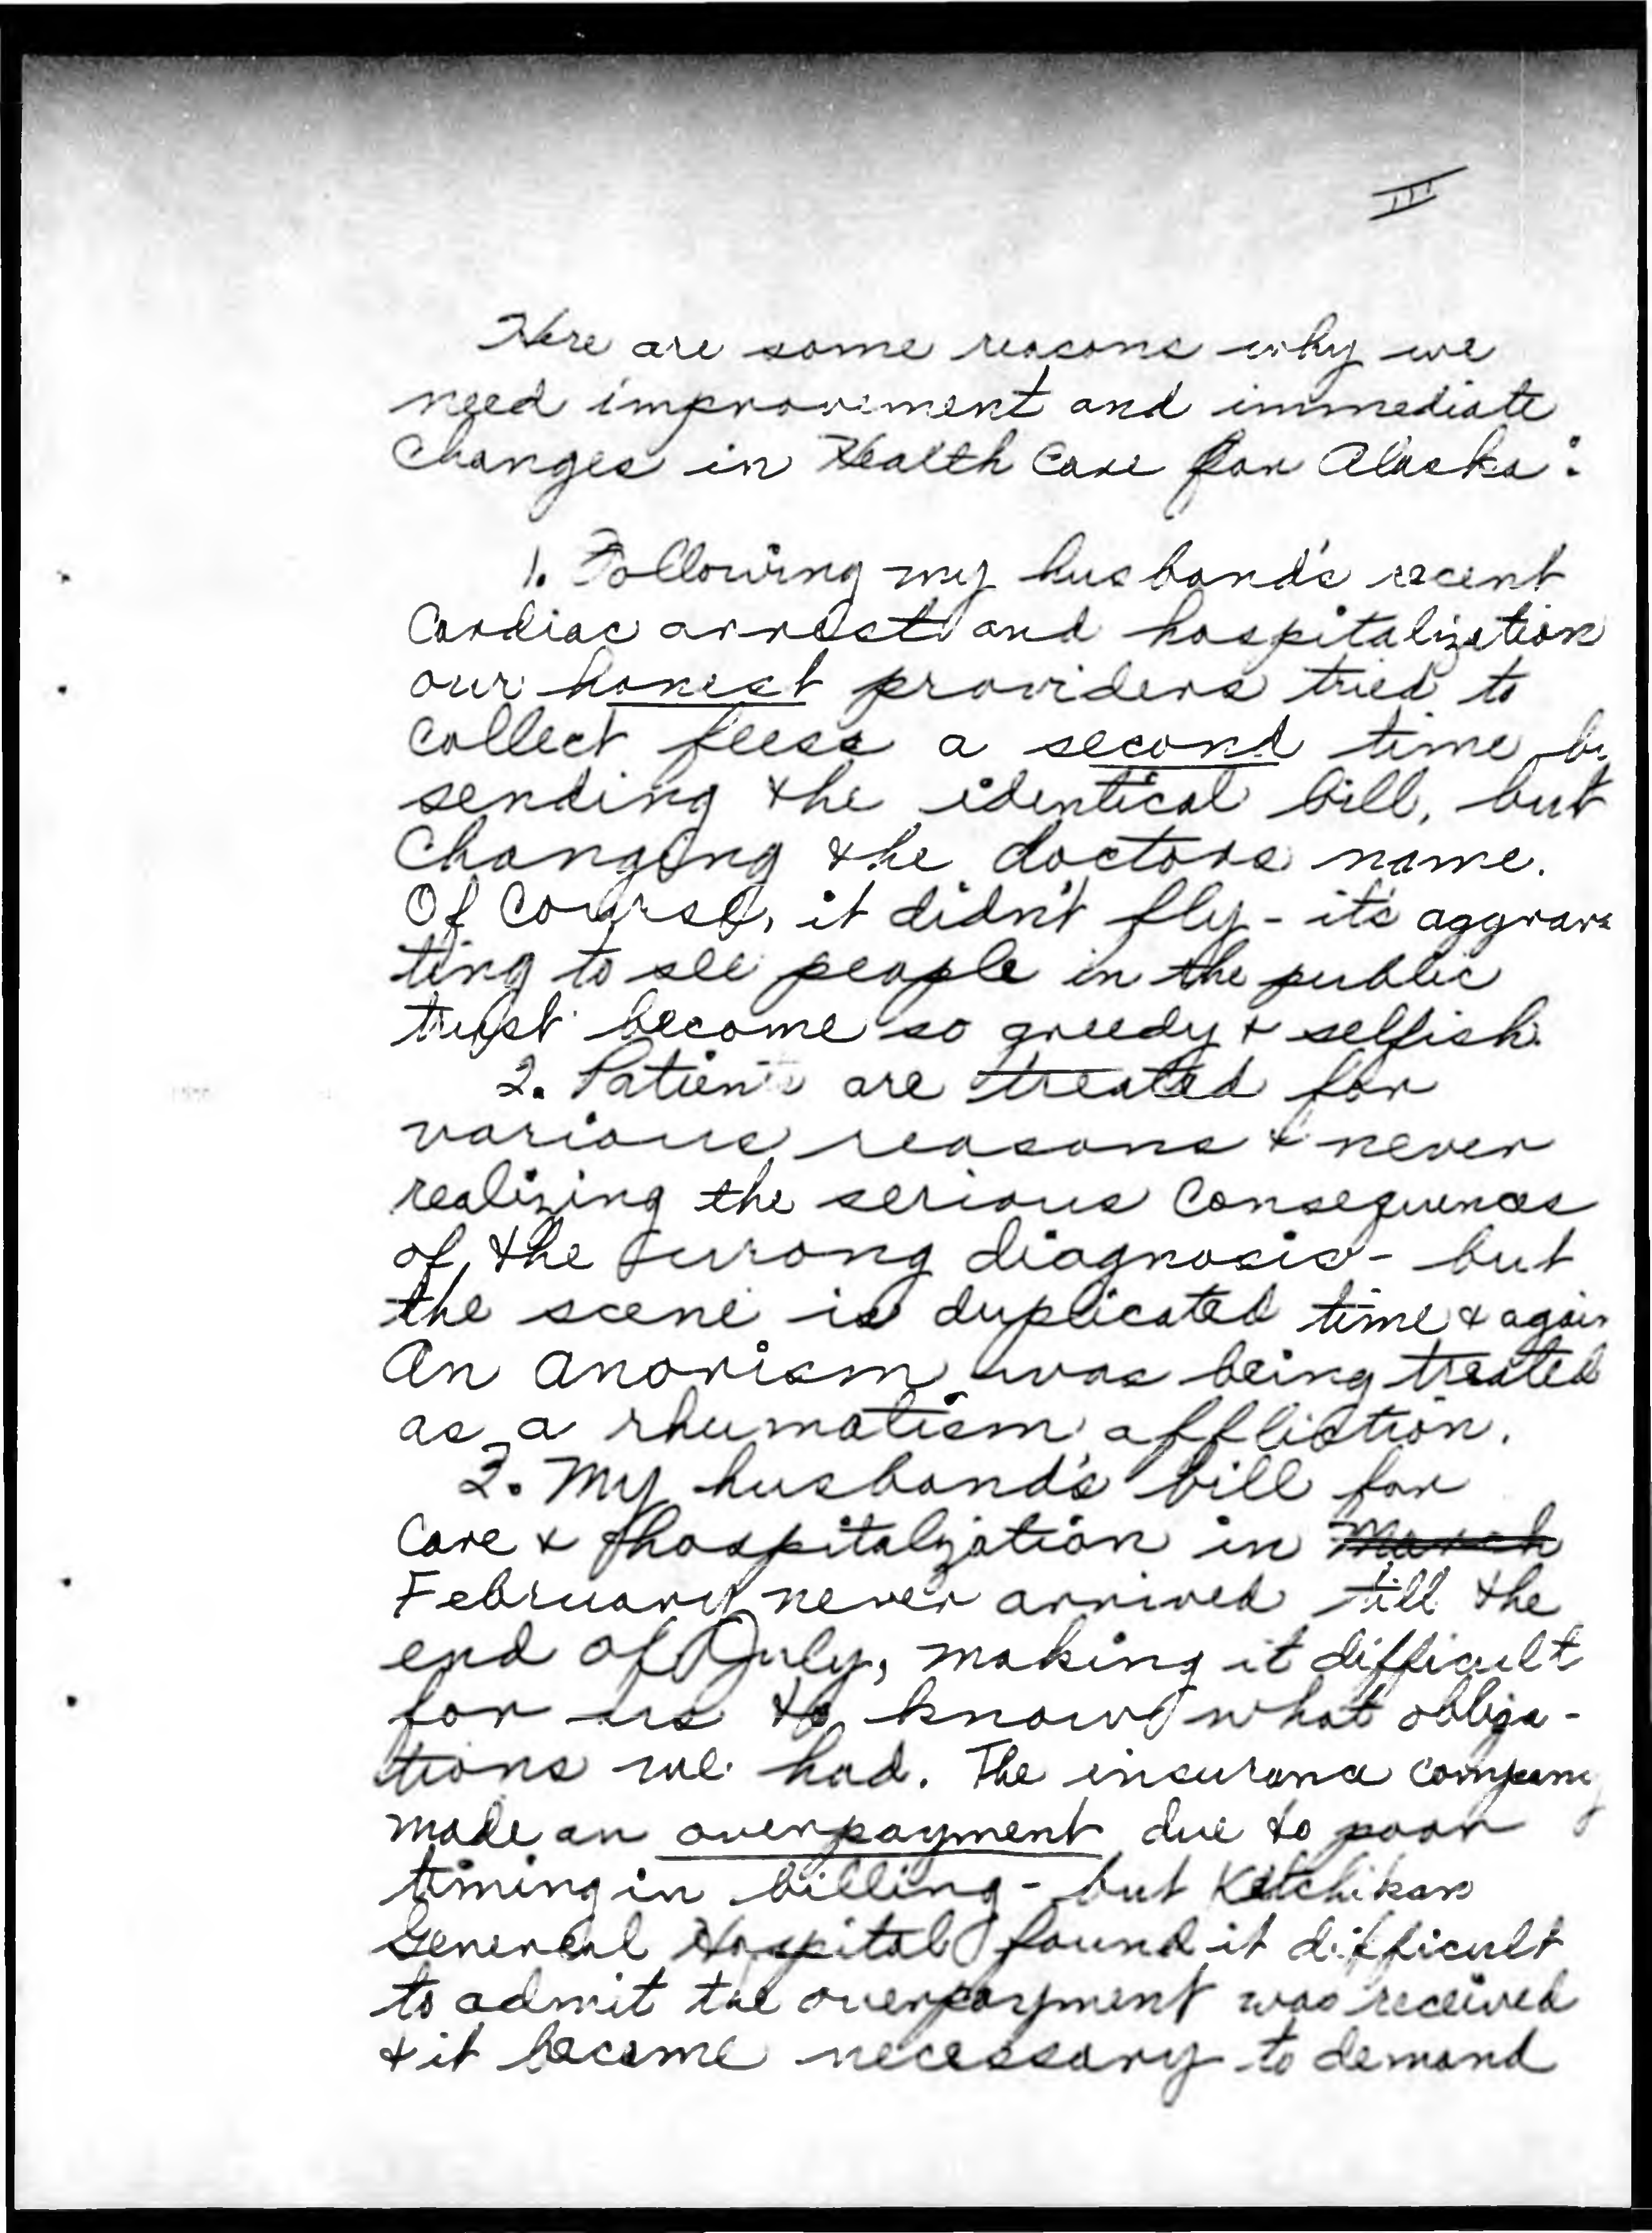 II
Here are some reasons why we
need improvement and immediate
changes in Health Care for Alaska:
1. Following my husband's recent
Cardiac arrest and hospitalization
our honest providers tried to
collect feess a second time by
sending the identical bill, but
Changing the doctors name.
Of course, it didn't fly - it's aggrava
ting to see people in the public
trust become so greedy & selfish.
2. Patients are treated for
various reasons & never
realizing the serious consequences
of the wrong diagnosis - but
the scene is duplicated time & again
An anorism was being treated
as a rhumatism affliction.
3. My husband's bill for
Care & hospitalization in March
February never arrived till the
end of July, making it difficult
for us to know what obliga-
tions we had. The insurance company
made an overpayment due to poor
timing in billing - but Ketchikan
General Hospital found it difficult
to admit the overpayment was received
& it became necessary to demand